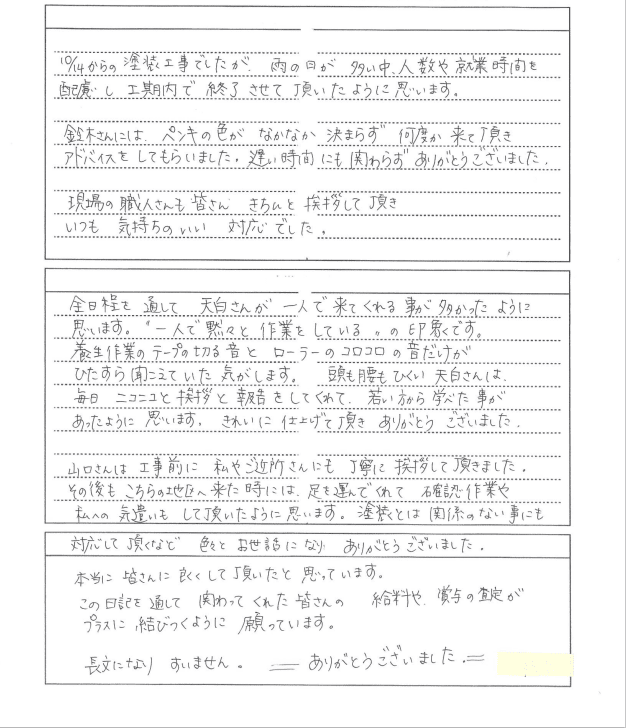 10/14からの塗装工事でしたが、雨の日が多い中、人数や就業時間を
配慮し工期内で終了させて頂いたように思います。
鈴木さんには、ペンキの色がなかなか決まらず何度か来て頂き
アドバイスをしてもらいました。遅い時間にも関わらずありがとうございました。
現場の職人さんも皆さんきちんと挨拶して頂き
いつも気持ちのいい対応でした。
全日程を通して天白さんが一人で来てくれる事が多かったように
思います。“一人で黙々と作業をしている„の印象です。
養生作業のテープの切る音とローラーのコロコロの音だけが
ひたすら聞こえていた気がします。頭も腰もひくい天白さんは、
毎日ニコニコと挨拶と報告をしてくれて、若い方から学べた事が
あったように思います。きれいに仕上げて頂きありがとうございました。
山口さんは工事前に私やご近所さんにも丁寧に挨拶して頂きました。
その後もこちらの地区へ来た時には、足を運んでくれて確認作業や
私への気遣いもして頂いたように思います。塗装とは関係のない事にも
対応して頂くなど色々とお世話になりありがとうございました。
本当に皆さんに良くして頂いたと思っています。
この日記を通して関わってくれた皆さんの給料や、賞与の査定が
プラスに結びつくように願っています。
長文になりすいません。＝ありがとうございました。＝